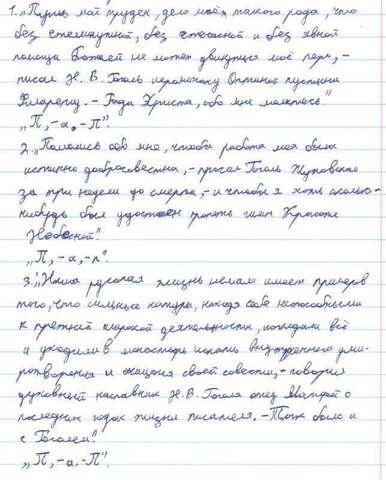 1. „Путь мой труден, дело моё такого рода, что
без ежеминутной, без ежечасной и без явной
помощи Божией не может двинуться моё перо, –
писал Н. В. Гоголь иеромонаху Оптиной пустыни
Филарету. – Ради Христа, обо мне молитесь".
„П, – а. – П".
2. „Помолись обо мне, чтобы работа моя была
истинно добросовестна, – просил Гоголь Жуковского
за три недели до смерти, – и чтобы я хоть сколько-
нибудь был удостоен пропеть гимн Красоте
Небесной".
„П, – а, – п".
3. „Наша русская жизнь немало имеет примеров
того, что сильные натуры, находя себя неспособными
к прежней широкой деятельности, покидали всё
и уходили в монастырь искать внутреннего уми-
ротворения и очищения своей совести, – говорил
духовный наставник Н. В. Гоголя отец Матфей о
последних годах жизни писателя. – Так было и
с Гоголем".
„П, – а. – П".